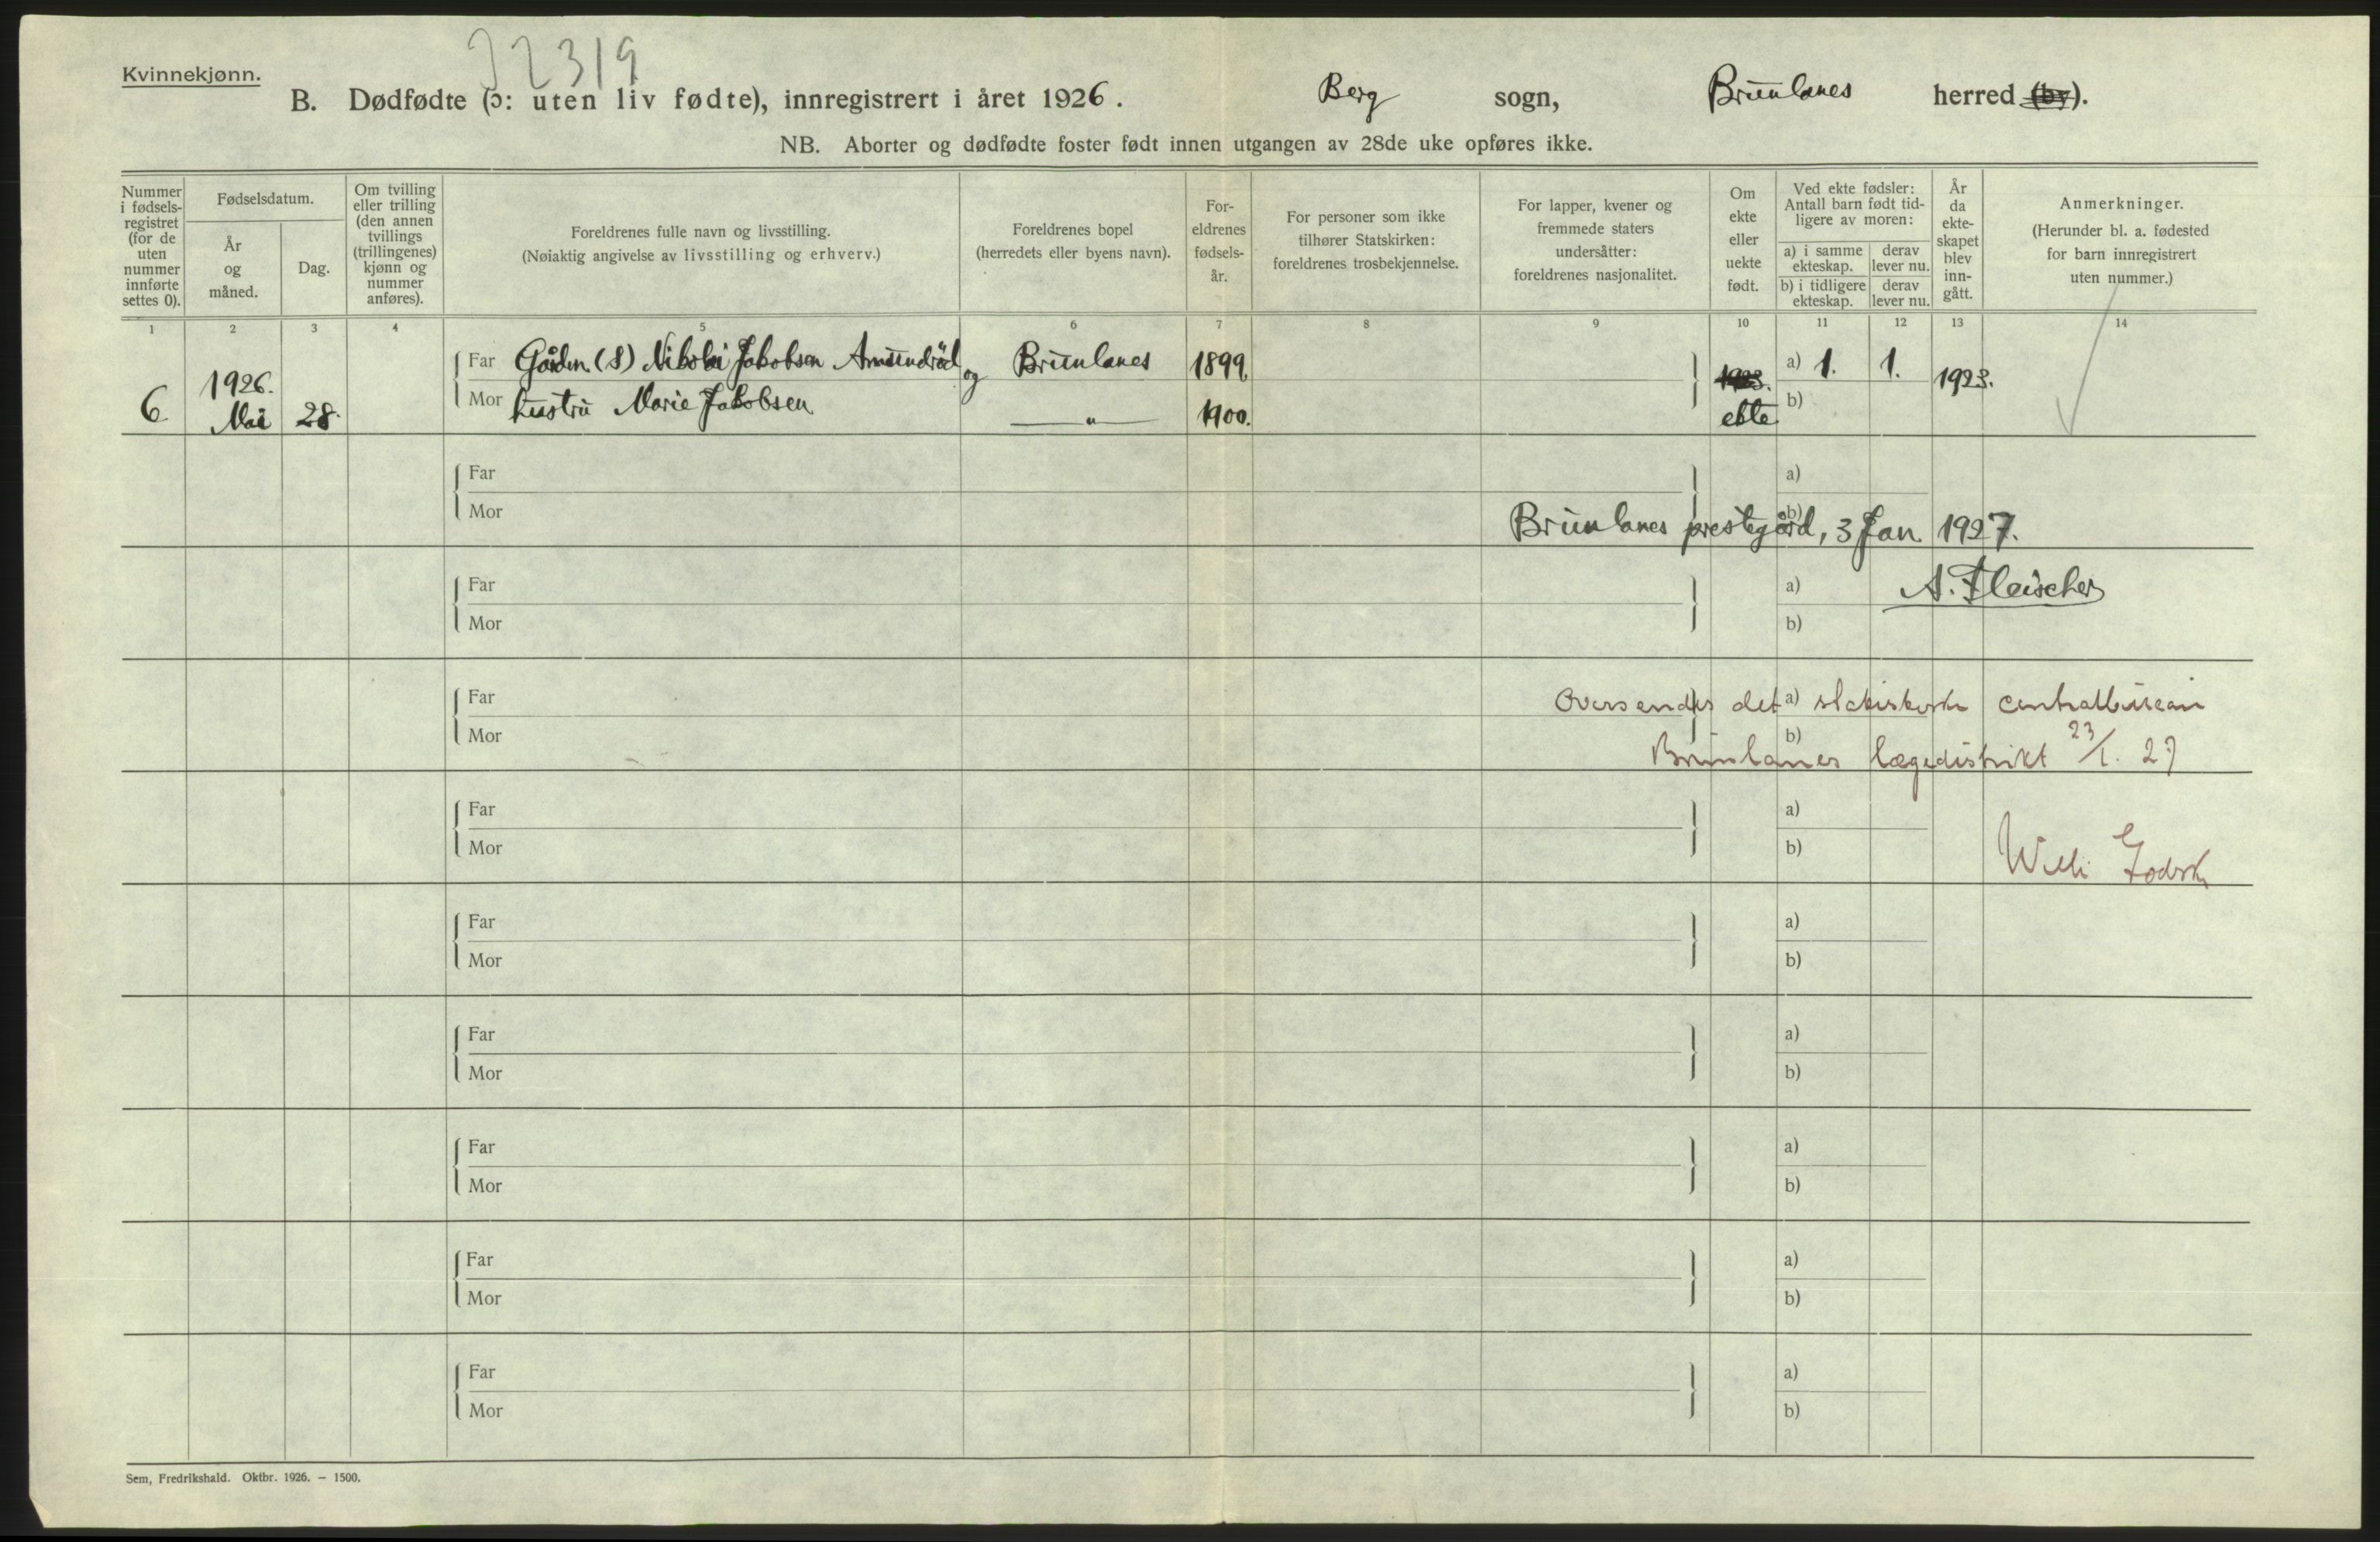 Kvinnekjønn.
J 2319
B. Dødfødte (ɔ: uten liv fødte), innregistrert i året 1926. Berg sogn, Brunlanes herred (by).
NB. Aborter og dødfødte foster født innen utgangen av 28de uke opføres ikke.
Nummer i fødsels-registret (for de uten nummer innførte settes 0).
Fødselsdatum.
År og måned.
Dag.
Om tvilling eller trilling (den annen tvillings (trillingenes) kjønn og nummer anføres).
Foreldrenes fulle navn og livsstilling.
(Nøiaktig angivelse av livsstilling og erhverv.)
Foreldrenes bopel
(herredets eller byens navn).
For-eldrenes fødsels-år.
For personer som ikke tilhører Statskirken: foreldrenes trosbekjennelse.
For lapper, kvener og fremmede staters undersåtter: foreldrenes nasjonalitet.
Om ekte eller uekte født.
Ved ekte fødsler: Antall barn født tid-ligere av moren:
a) i samme ekteskap. derav lever nu.
b) i tidligere ekteskap. derav lever nu.
År da ekte-skapet blev inn-gått.
Anmerkninger.
(Herunder bl. a. fødested for barn innregistrert uten nummer.)
1 2 3 4 5 6 7 8 9 10 11 12 13 14
Far Gårdm. (S) Nikolai Jakobsen Amundröd og Brunlanes 1899. 1923. a) 1. 1. 1923.
6. 1926. Mai 28. Mor hustru Marie Jakobsen — " — 1900. ekte b)
Far a)
Mor b)
Brunlanes prestegård, 3 Jan. 1927.
Far a)
A. Fleischer
Mor b)
Far a)
Oversendes det statistiske centralbureau
Mor b)
Brunlanes lægedistrikt 23/1. 27
Far a)
Mor b)
Willi
Far a)
Mor b)
Far a)
Mor b)
Far a)
Mor b)
Far a)
Mor b)
Far a)
Mor b)
Sem, Fredrikshald. Oktbr. 1926. – 1500.